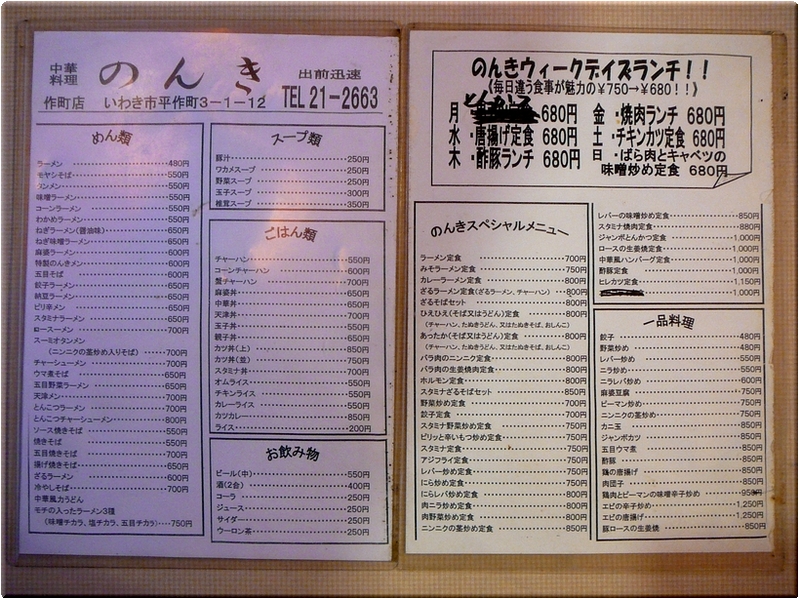 中華料理 のんき 出前迅速
作町店 いわき市平作町3-1-12 TEL 21-2663
めん類
ラーメン 480円
モヤシそば 550円
タンメン 550円
味噌ラーメン 550円
コーンラーメン 550円
わかめラーメン 550円
ねぎラーメン(醤油味) 650円
ねぎ味噌ラーメン 650円
麻婆ラーメン 600円
特製のんきメン 600円
五目そば 600円
餃子ラーメン 650円
納豆ラーメン 650円
ピリ辛メン 650円
スタミナラーメン 650円
ロースーメン 700円
スーミオタンメン
(ニンニクの茎炒め入りそば) 700円
チャーシューメン 700円
ウマ煮そば 650円
五目野菜ラーメン 650円
天津メン 700円
とんこつラーメン 700円
とんこつチャーシューメン 800円
ソース焼きそば 550円
焼きそば 550円
五目焼きそば 700円
揚げ焼きそば 650円
ざるラーメン 600円
冷やしそば 700円
中華風力うどん
モチの入ったラーメン3種
(味噌チカラ、塩チカラ、五目チカラ) 750円
スープ類
豚汁 250円
ワカメスープ 250円
野菜スープ 250円
玉子スープ 300円
椎茸スープ 350円
ごはん類
チャーハン 550円
コーンチャーハン 600円
蟹チャーハン 700円
麻婆丼 650円
中華丼 650円
天津丼 700円
玉子丼 550円
親子丼 650円
カツ丼(上) 850円
カツ丼(並) 750円
スタミナ丼 700円
オムライス 550円
チキンライス 550円
カレーライス 550円
カツカレー 850円
ライス 200円
お飲み物
ビール(中) 550円
酒(2合) 400円
コーラ 250円
ジュース 250円
サイダー 250円
ウーロン茶 250円
のんきウィークデイズランチ!!
(毎日違う食事が魅力の¥750→¥680!!)
月 680円 金・焼肉ランチ 680円
水・唐揚げ定食 680円 土・チキンカツ定食 680円
木・酢豚ランチ 680円 日・ばら肉とキャベツの
味噌炒め定食 680円
のんきスペシャルメニュー
ラーメン定食 700円
みそラーメン定食 750円
カレーラーメン定食 800円
ざるラーメン定食(ざるラーメン、チャーハン) 800円
ざるそばセット 800円
ひえひえ(そば又はうどん)定食 800円
(チャーハン、たぬきうどん、又はたぬきそば、おしんこ)
あったか(そば又はうどん)定食 800円
(チャーハン、たぬきうどん、又はたぬきそば、おしんこ)
バラ肉のニンニク定食 800円
バラ肉の生姜焼定食 800円
ホルモン定食 800円
スタミナざるそばセット 850円
野菜炒め定食 700円
餃子定食 700円
スタミナ野菜炒め定食 750円
ピリッと辛いもつ炒め定食 750円
スタミナ定食 750円
アジフライ定食 750円
レバー炒め定食 750円
にら炒め定食 750円
にらレバ炒め定食 800円
肉ニラ炒め定食 800円
肉野菜炒め定食 800円
ニンニクの茎炒め定食 800円
レバーの味噌炒め定食 850円
スタミナ焼肉定食 880円
ジャンボとんかつ定食 1,000円
ロースの生姜焼定食 1,000円
中華風ハンバーグ定食 1,000円
酢豚定食 1,000円
ヒレカツ定食 1,150円
1,000円
一品料理
餃子 480円
野菜炒め 480円
レバー炒め 550円
ニラ炒め 550円
ニラレバ炒め 600円
麻婆豆腐 750円
ピーマン炒め 750円
ニンニクの茎炒め 750円
カニ玉 850円
ジャンボカツ 850円
五目ウマ煮 850円
酢豚 850円
鶏の唐揚げ 850円
肉団子 850円
鶏肉とピーマンの味噌辛子炒め 950円
エビの辛子炒め 1,250円
エビの唐揚げ 1,250円
豚ロースの生姜焼 850円